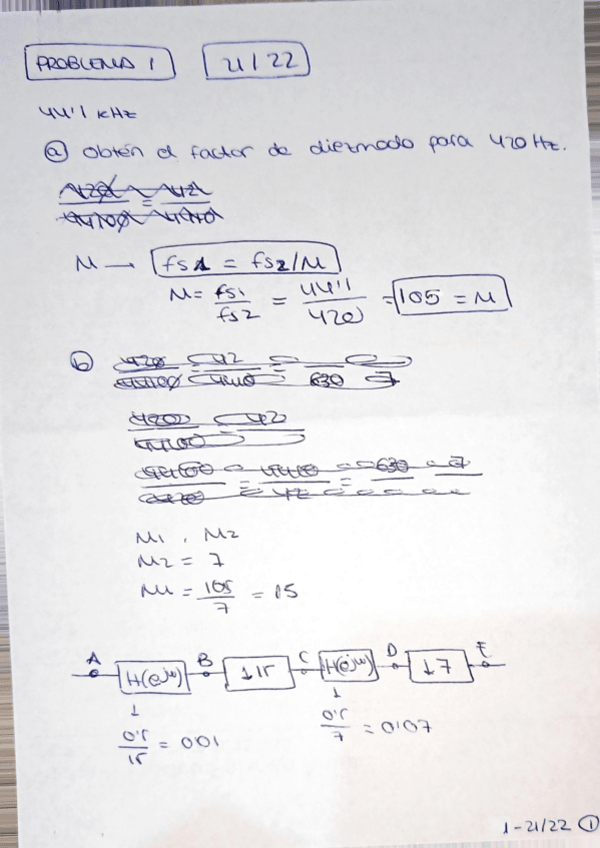 PROBLEMA 1 21/22
44'1 kHz
a) Obtén el factor de diezmado para 420 Hz.
420/44100 = 42/4410
M → fs1 = fs2/M
M = fs1/fs2 = 44'1/420 = 105 = M
b)
M1, M2
M2 = 7
M1 = 105/7 = 15
A H(ejω) B ↓15 C H(ejω) D ↓7 E
↓ ↓
0'5/15 = 0'01 0'5/7 = 0'07
1-21/22 1